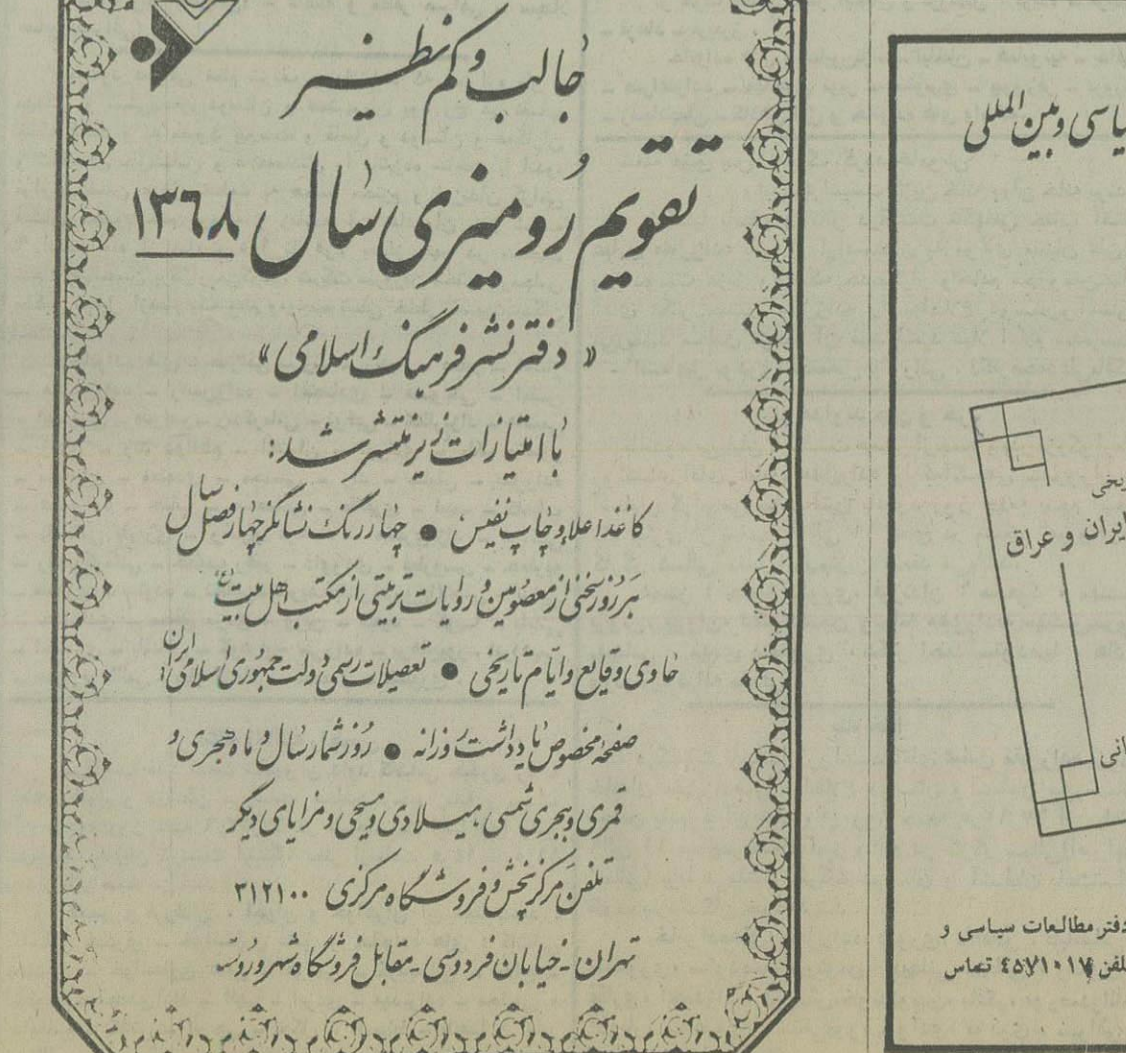 جالب و کم نظیر
تقویم رومیزی سال ۱۳۶۸
« دفتر نشر فرهنگ اسلامی »
با امتیازات زیر منتشر شد:
کاغذ اعلا و چاپ نفیس ● چهار رنگ نشانگر چهار فصل سال
هر روز سخنی از معصومین و روایات تربیتی از مکتب اهل بیت (ع)
حاوی وقایع و ایام تاریخی ● تعطیلات رسمی دولت جمهوری اسلامی ایران
صفحه مخصوص یادداشت روزانه ● روزشمار سال و ماه هجری و
قمری و هجری شمسی، میلادی و مسیحی و مزایای دیگر
تلفن مرکز پخش و فروشگاه مرکزی ۳۱۲۱۰۰
تهران - خیابان فردوسی - مقابل فروشگاه شهر و روستا
یاسی و بین‌المللی
ریخی
ایران و عراق
انی
دفتر مطالعات سیاسی و
تلفن ٤٥٧١٠١٧ تماس